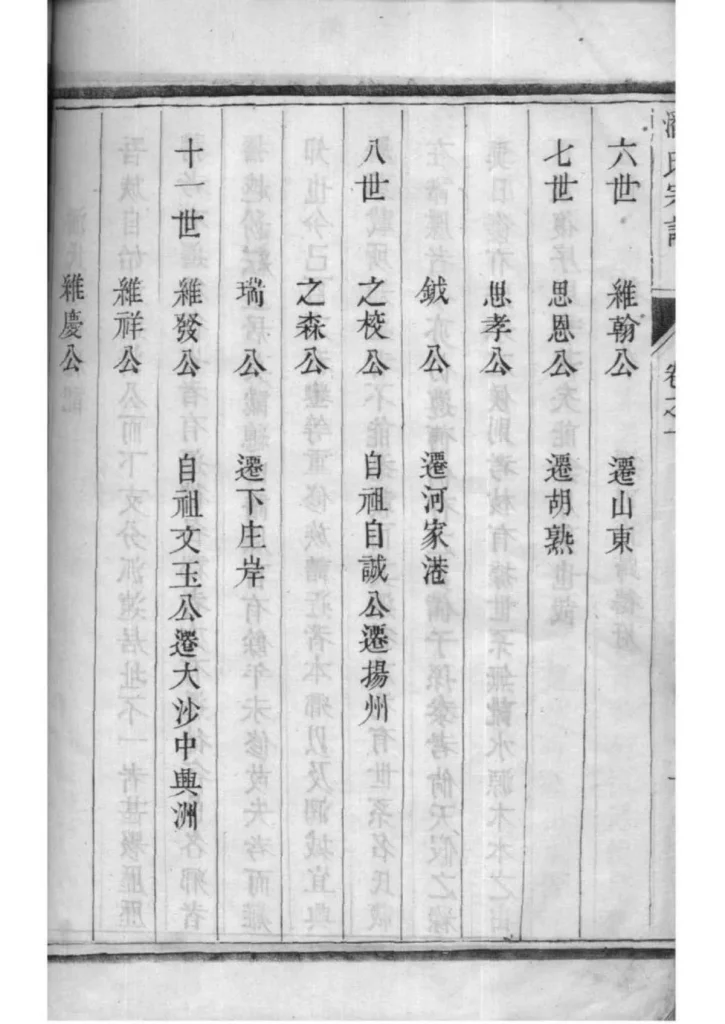 氏宗譜 卷之一
六世 維翰公 遷山東
七世 思恩公 遷胡熟
思孝公
鉞公 遷河家港
八世 之校公 自祖自誠公遷揚州
之森公
瑞公 遷下庄岸
十一世 維發公 自祖文玉公遷大沙中興洲
維祥公
維慶公